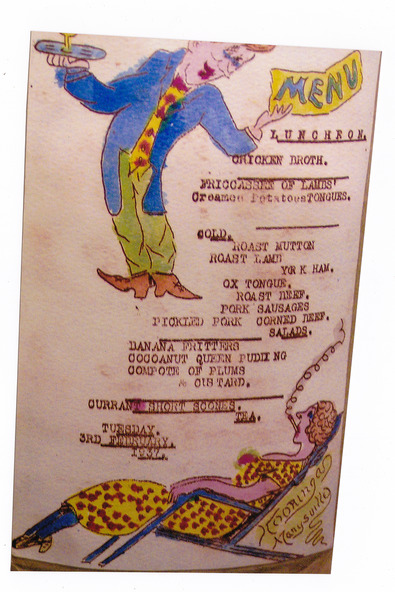 MENU
LUNCHEON.
CHICKEN BROTH.
FRICCASSEE OF LAMBS'
Creamed Potatoes TONGUES.
COLD.
ROAST MUTTON
ROAST LAMB
YORK HAM.
OX TONGUE.
ROAST BEEF.
PORK SAUSAGES
PICKLED PORK CORNED BEEF.
SALADS.
BANANA FRITTERS
COCOANUT QUEEN PUDDING
COMPOTE OF PLUMS
& CUSTARD.
CURRANT SHORT SCONES.
TEA.
TUESDAY.
3RD FEBRUARY.
1937.
Marysville